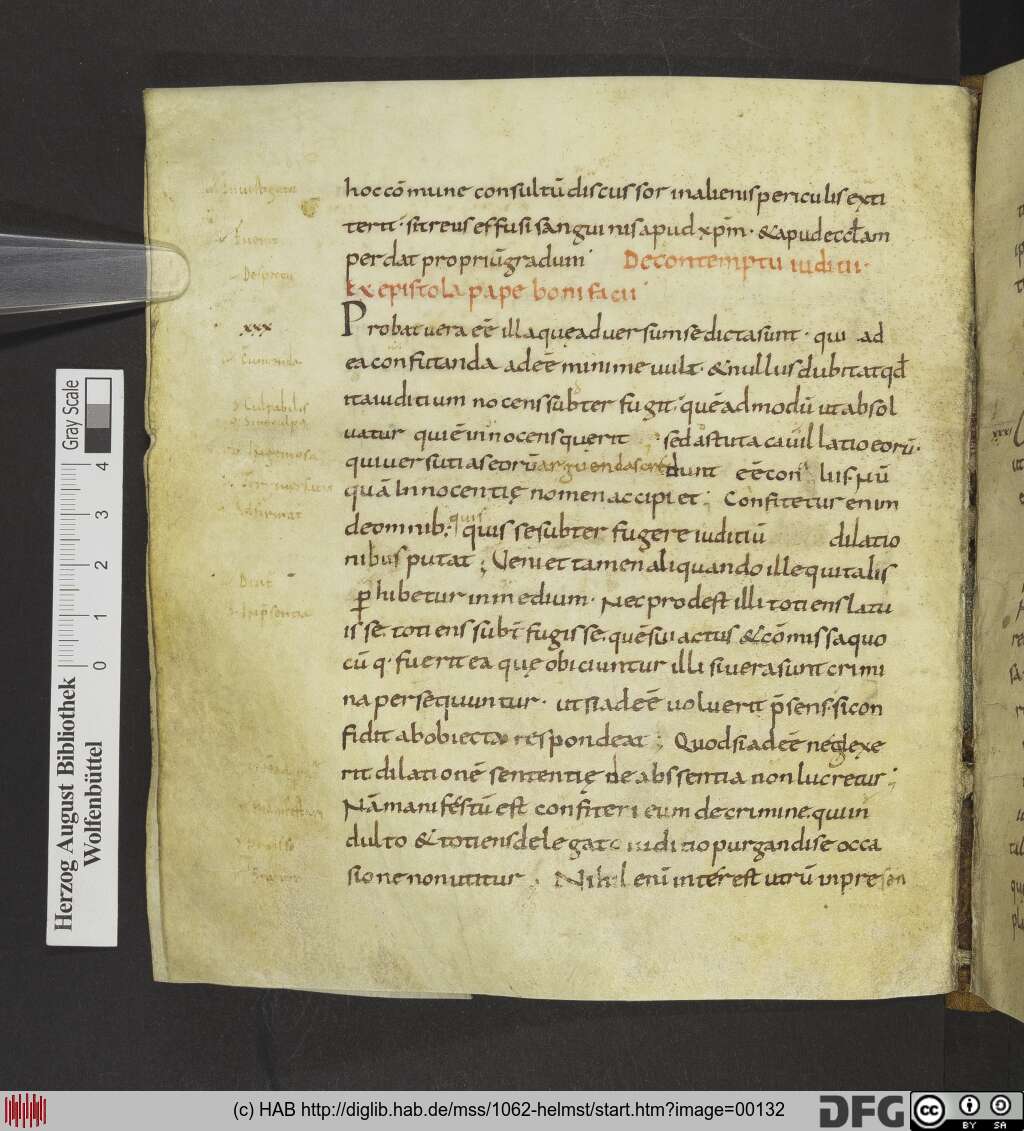 hoc cōmune consultū discussor in alienis periculis exti
terit· sit reus effusi sanguinis apud xp̄m· & apud eccl̄am
perdat propriū gradum De contemptu iuditii·
Ex epistola pape bonifacii
xxx
Probat uera eē̄ illa quę aduersum se dicta sunt· qui ad
ea confutanda adeē̄ minime uult· & nullus dubitat qđ
ita iuditium nocens subterfugit· quēadmodū ut absol
uatur qui ē innocens querit sed astuta cauillatio eorū·
qui uersutias eorū arguendas credunt eē̄ con liis· Nū
quā Innocentię nomen accipiet; Confitetur enim
de omnib; quis se subterfugere iuditiū dilatio
nibus putat; Ueniet tamen aliquando ille qui talis
ꝑhibetur in medium· Nec prodest illi totiens latu
isse. totiens subt̄ fugisse. quē sui actus & cōmissa quo
cūq· fuerit ea quę obiciuntur illi si uera sunt crimi
na persequuntur· ut si adeē̄ uoluerit p̄sens· si con
fidit ab obiecta respondeat; Quod si adeē̄ neglexe
rit dilationē sententię de abssentia non lucretur;
Nā manifestū est confiteri eum de crimine. qui in
dulto & totiens delegato iuditio purgandi se occa
sione non utitur; Nihil enī interest utrū in presen
Herzog August Bibliothek
Wolfenbüttel
0 1 2 3 4
Gray Scale
(c) HAB http://diglib.hab.de/mss/1062-helmst/start.htm?image=00132
DFG
cc
BY SA